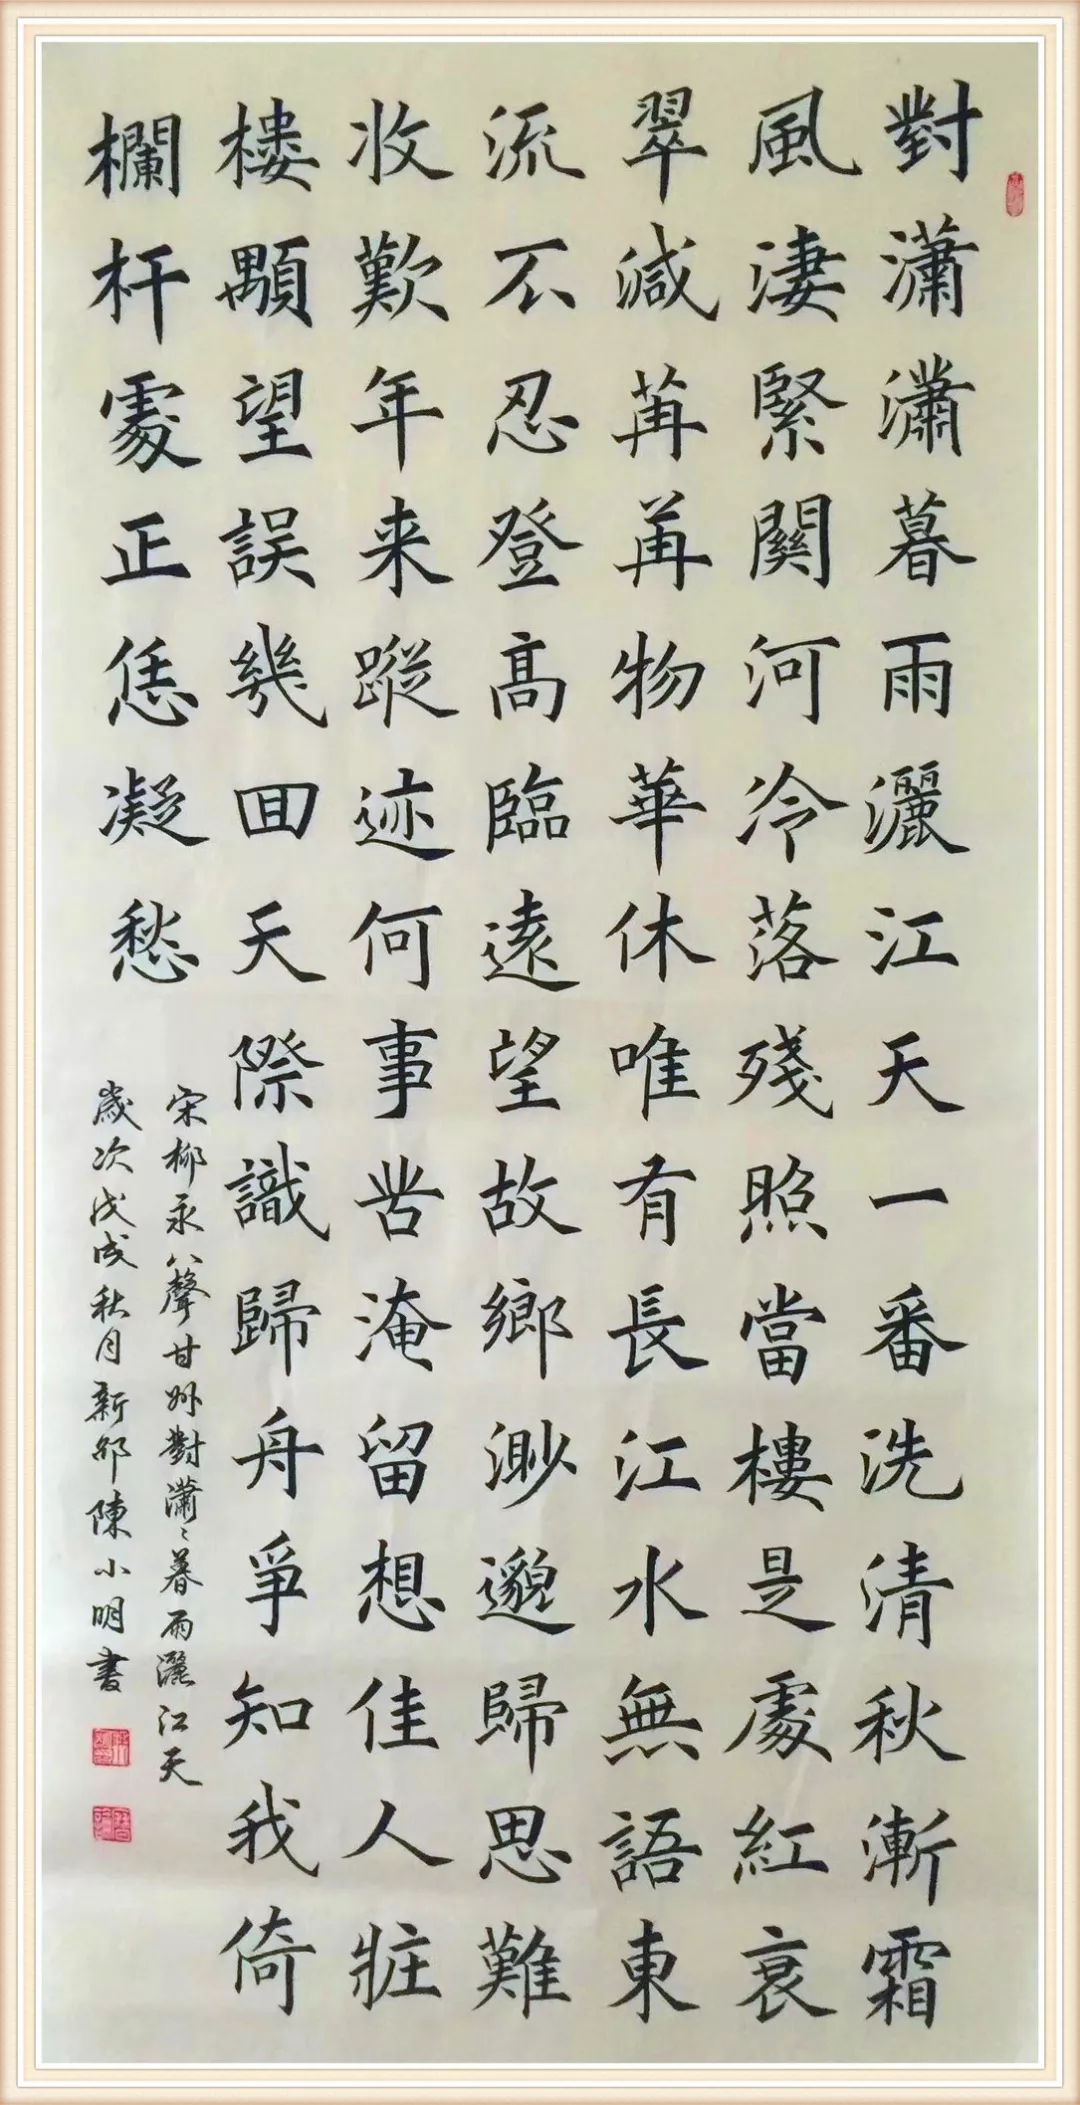 對瀟瀟暮雨灑江天一番洗清秋漸霜
風淒緊關河冷落殘照當樓是處紅衰
翠減苒苒物華休唯有長江水無語東
流不忍登高臨遠望故鄉渺邈歸思難
收歎年来蹤迹何事苦淹留想佳人粧
楼顒望誤幾回天際識歸舟爭知我倚
欄杆處正恁凝愁
宋柳永八聲甘州對瀟〻暮雨灑江天
歲次戊戌秋月新邵陳小明書